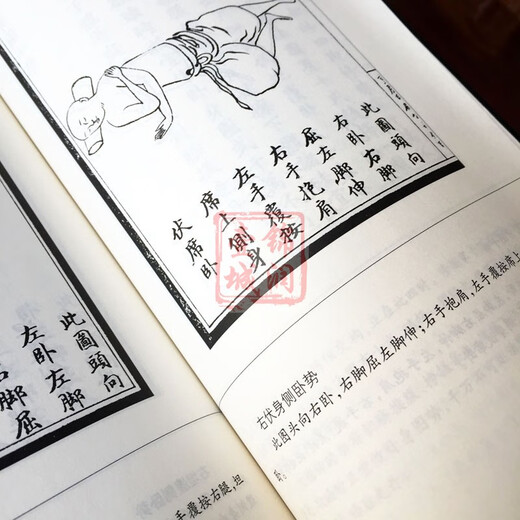 此圖頭向
右卧右脚
屈左脚伸
右手抱肩
左手覆按
席上側身
伏席卧
右伏身侧卧势
此图头向右卧，右脚屈左脚伸；右手抱肩，左手覆按席上
此圖頭向
左卧左脚
脚屈
手覆按右腿，坦